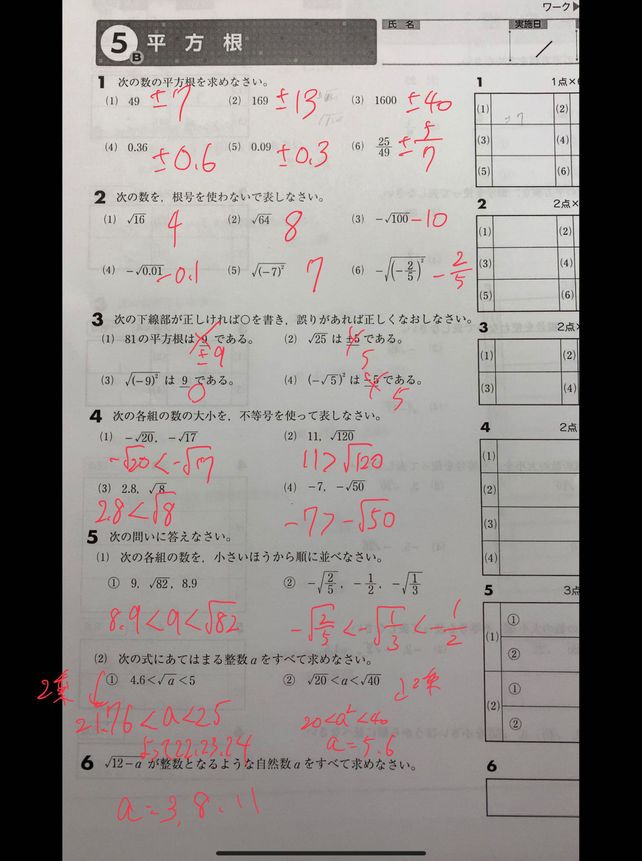 ワーク▶
5 B 平方根
氏名 実施日
/
1 次の数の平方根を求めなさい。
(1) 49 ±7 (2) 169 ±13 (3) 1600 ±40
(4) 0.36 ±0.6 (5) 0.09 ±0.3 (6) 25/49 ±5/7
2 次の数を，根号を使わないで表しなさい。
(1) √16 4 (2) √64 8 (3) -√100 -10
(4) -√0.01 -0.1 (5) √(-7)² 7 (6) -√(-2/5)² -2/5
3 次の下線部が正しければ○を書き，誤りがあれば正しくなおしなさい。
(1) 81の平方根は 9 である。 (2) √25 は ±5である。
±9 5
(3) √(-9)² は 9 である。 (4) (-√5)² は -5である。
○ 5
4 次の各組の数の大小を，不等号を使って表しなさい。
(1) -√20，-√17 (2) 11，√120
-√20<-√17 11>√120
(3) 2.8，√8 (4) -7，-√50
2.8<√8 -7>-√50
5 次の問いに答えなさい。
(1) 次の各組の数を，小さいほうから順に並べなさい。
① 9，√82，8.9 ② -√2/5，-1/2，-√1/3
8.9<9<√82 -√2/5<-√1/3<-1/2
(2) 次の式にあてはまる整数aをすべて求めなさい。
2乗 ↓ ① 4.6<√a<5 ② √20<a<√40 ↓2乗
21.76<a<25 20<a²<40
22.23.24 a=5.6
6 √12-a が整数となるような自然数aをすべて求めなさい。
a=3,8.11
1 1点×
(1) ±7 (2)
(3) (4)
(5) (6)
2 2点×
(1) (2)
(3) (4)
(5) (6)
3 2点×
(1) (2)
(3) (4)
4 2点
(1)
(2)
(3)
(4)
5 3点
(1) ①
②
(2) ①
②
6